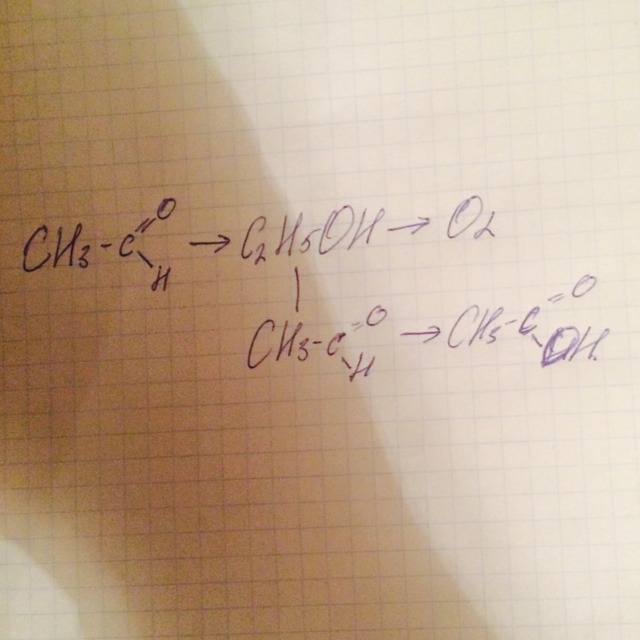 CH₃-C=O H → C₂H₅OH → O₂
|
CH₃-C=O H → CH₃-C=O OH